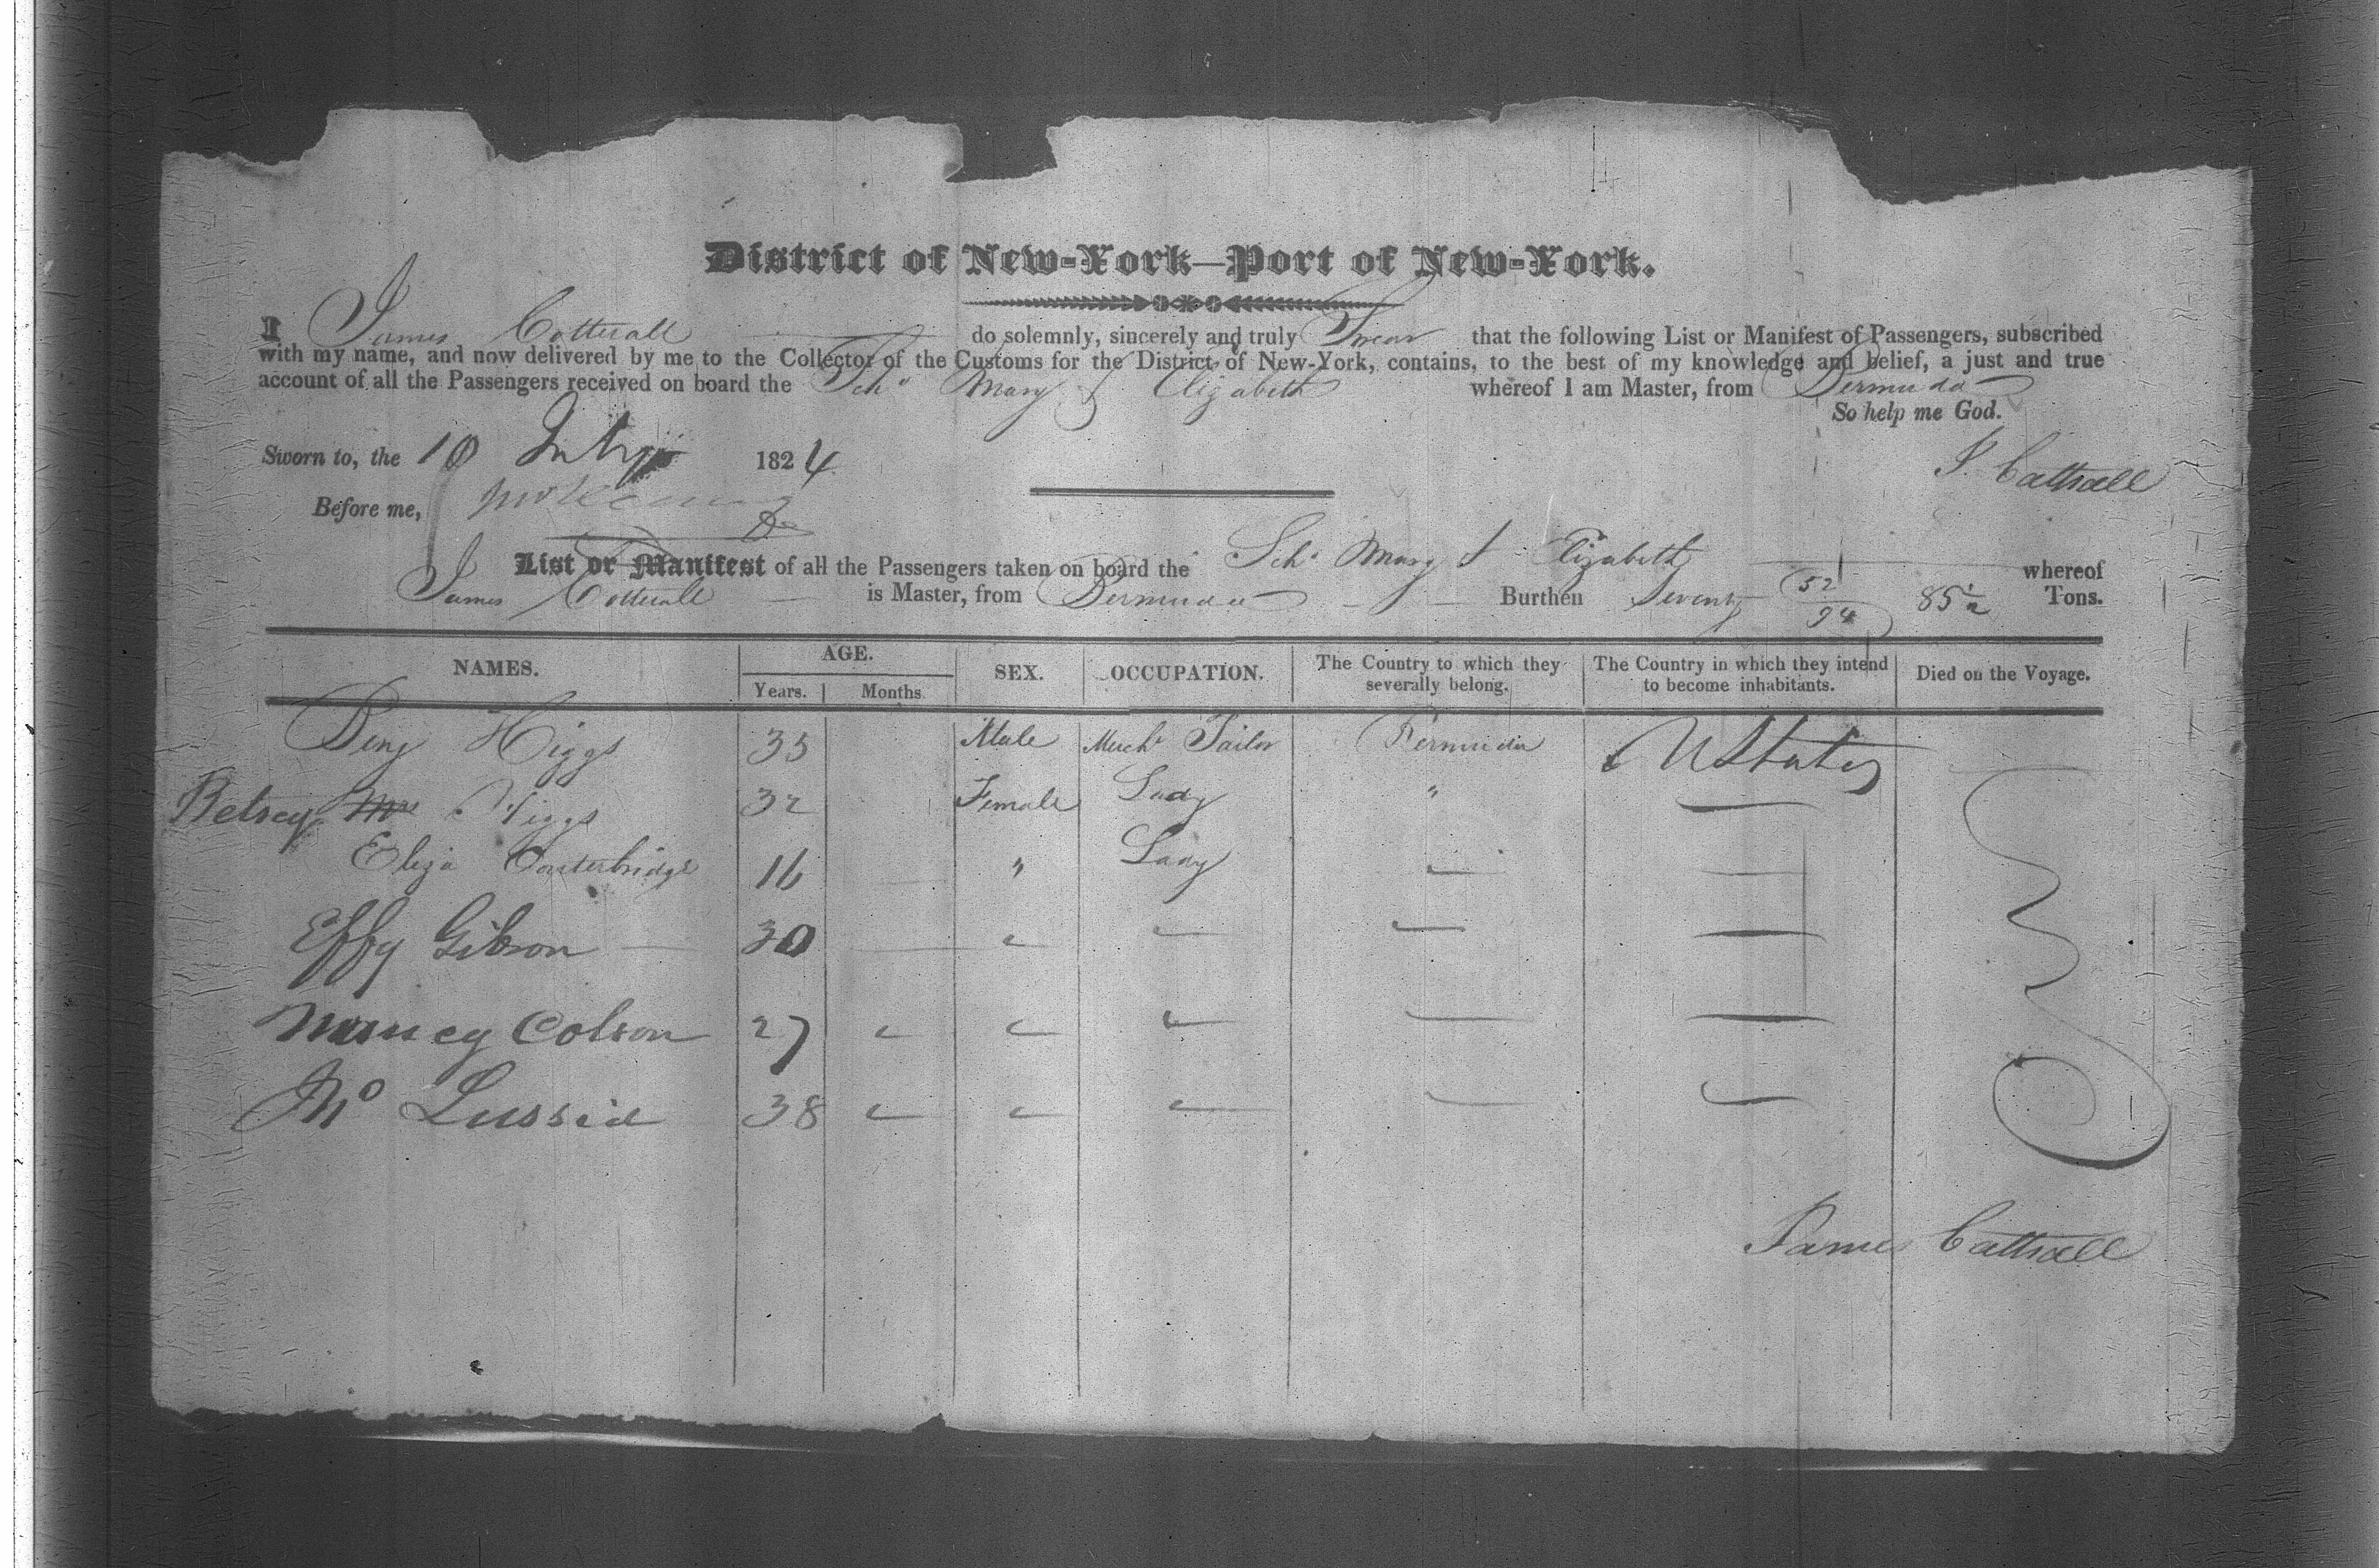 District of New-York—Port of New-York.
I James Cotterall do solemnly, sincerely and truly Swear that the following List or Manifest of Passengers, subscribed
with my name, and now delivered by me to the Collector of the Customs for the District of New-York, contains, to the best of my knowledge and belief, a just and true
account of all the Passengers received on board the Schr Mary & Elizabeth whereof I am Master, from Bermuda
So help me God.
Sworn to, the 10 July 1824
J. Cattrall
Before me,
List or Manifest of all the Passengers taken on board the Schr Mary & Elizabeth whereof
James Cotterall is Master, from Bermuda Burthen Seventy 52/94 85 1/2 Tons.
NAMES. AGE. SEX. OCCUPATION. The Country to which they severally belong. The Country in which they intend to become inhabitants. Died on the Voyage.
Years. Months.
Benj Higgs 35 Male Mercht Tailor Bermuda U States
Betsey Mrs Higgs 32 Female Lady "
Eliza Outerbridge 16 " Lady
Effy Gibson 30
Nancy Colson 27
Mo Lussie 38
James Cattrall